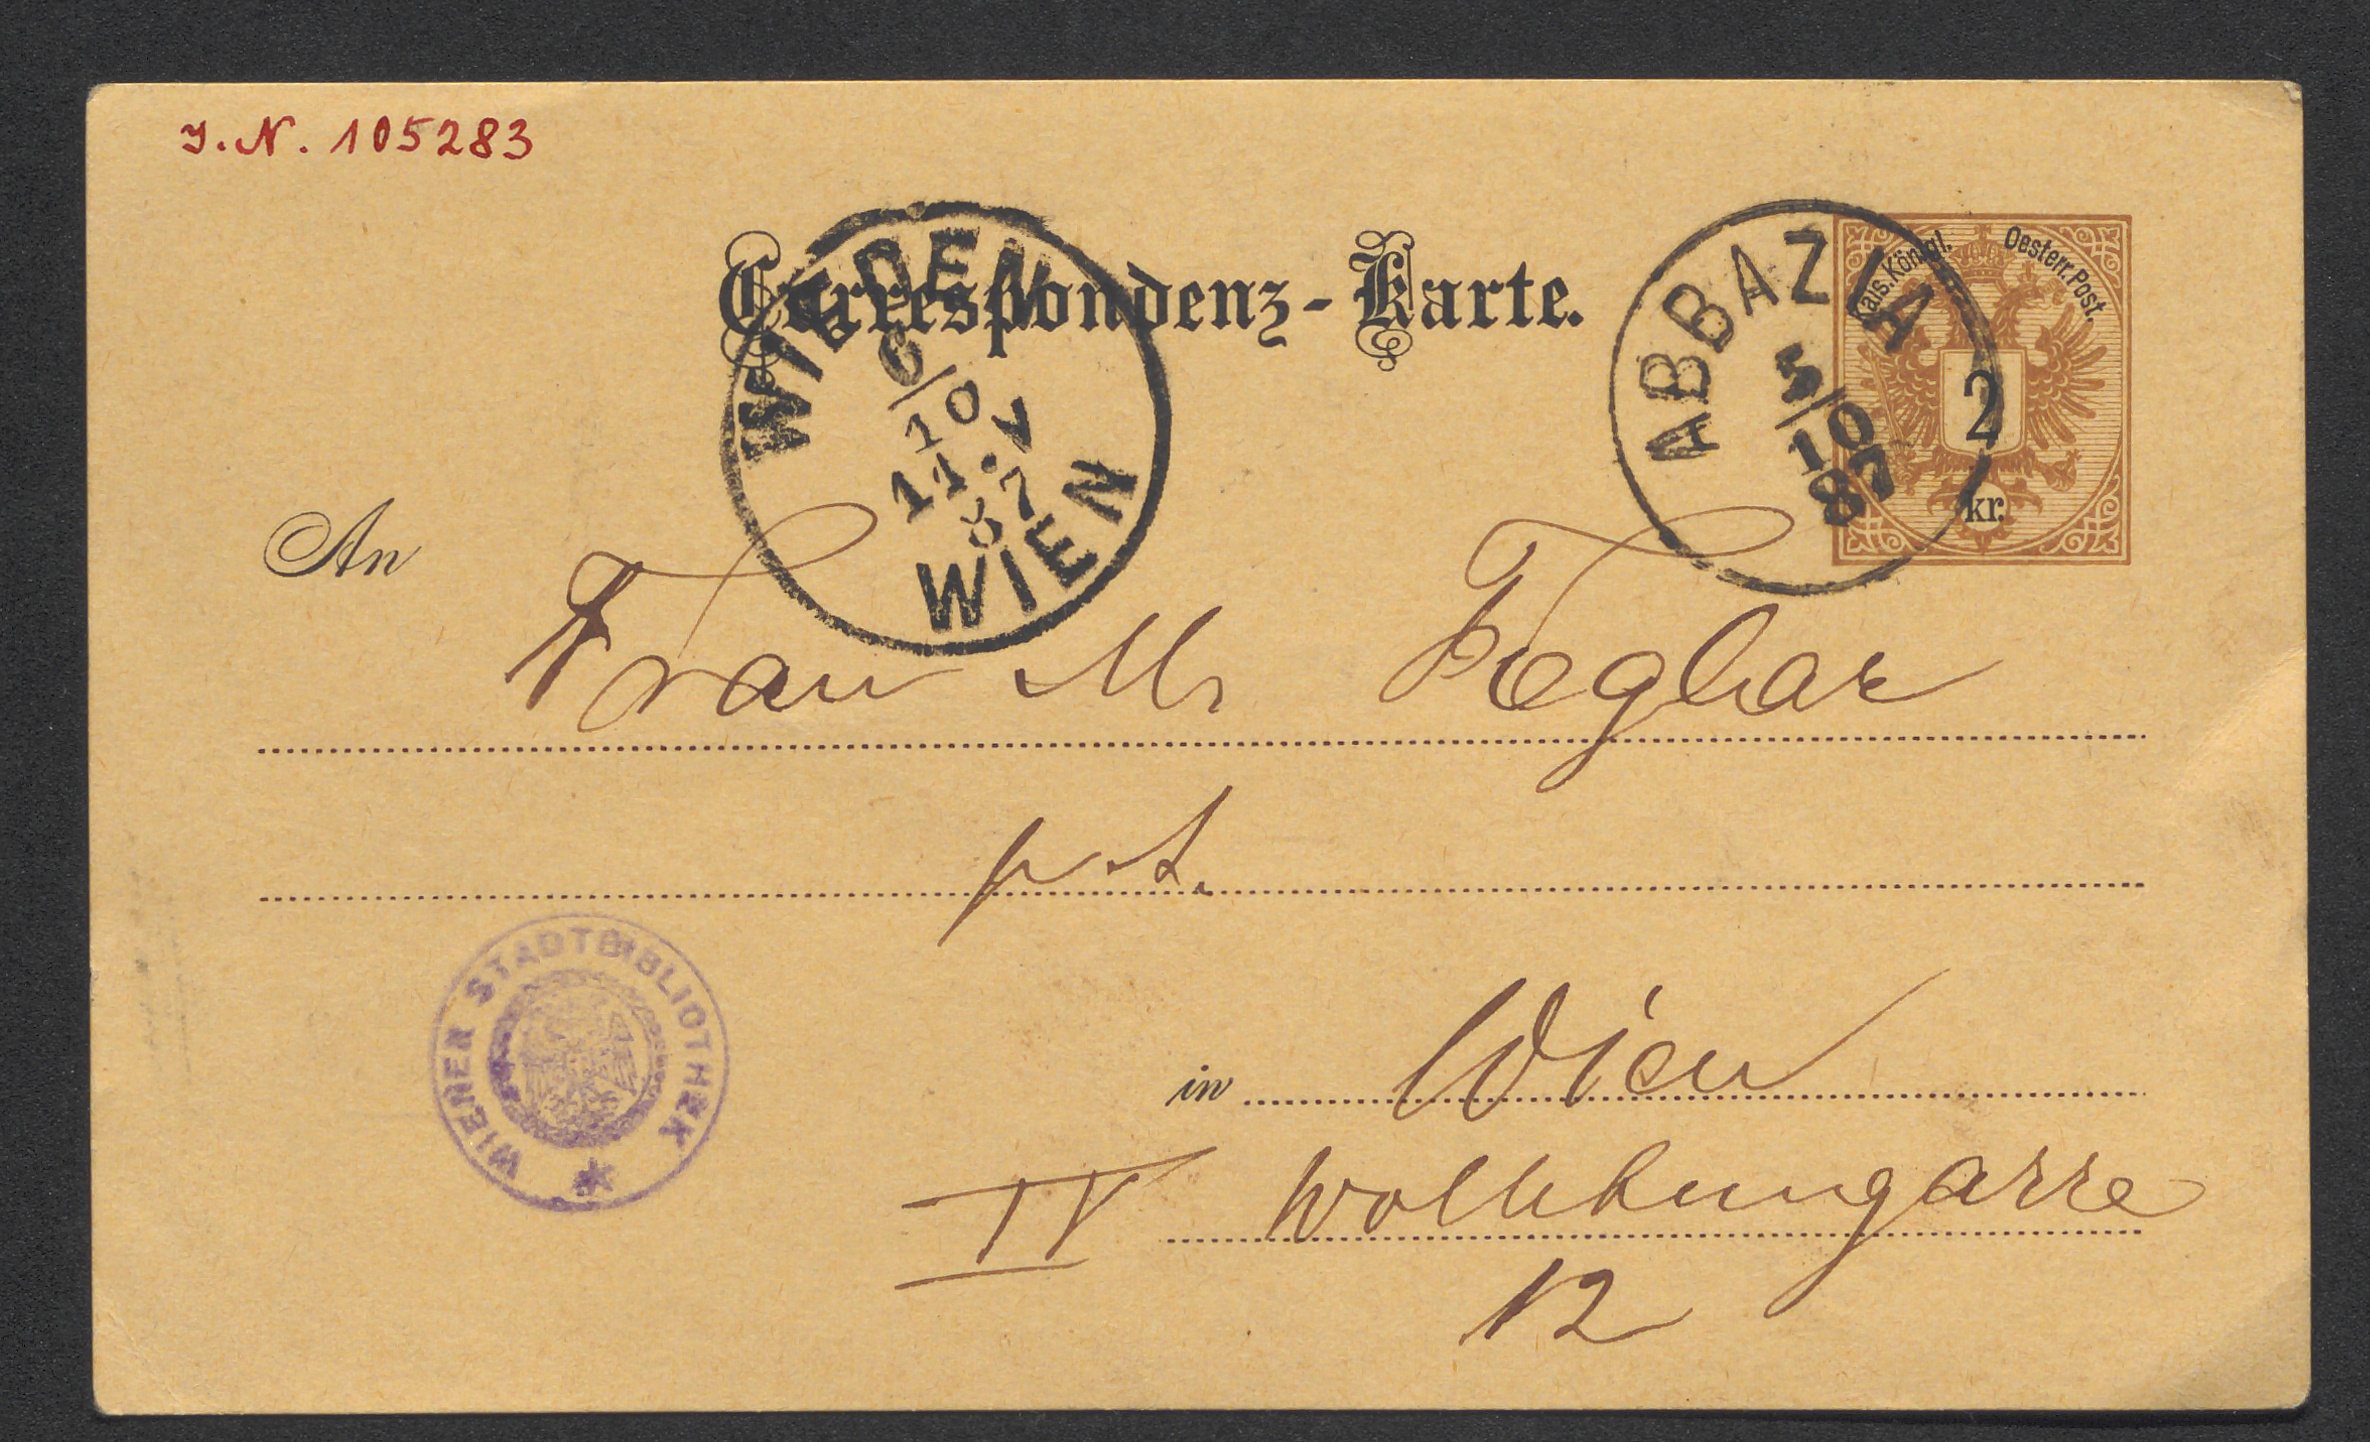 J.N. 105283
Correspondenz-Karte.
WIEDEN
6/10
11.V
87
WIEN
ABBAZIA
5/10
87
Kais. Königl. Oesterr. Post.
2
kr.
An
Frau M. Feglar
p. A.
WIENER STADTBIBLIOTHEK
in Wien
IV Wohllebengasse
12